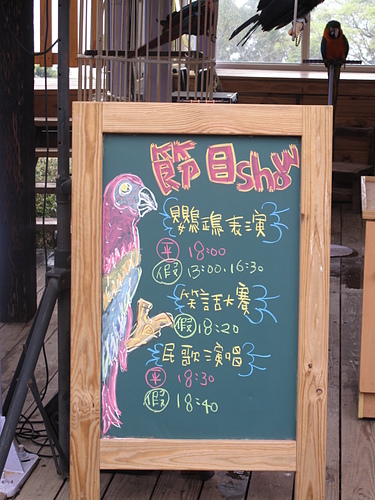 節目show
鸚鵡表演
平 18:00
假 13:00.16:30
笑話大賽
假 18:20
民歌演唱
平 18:30
假 18:40